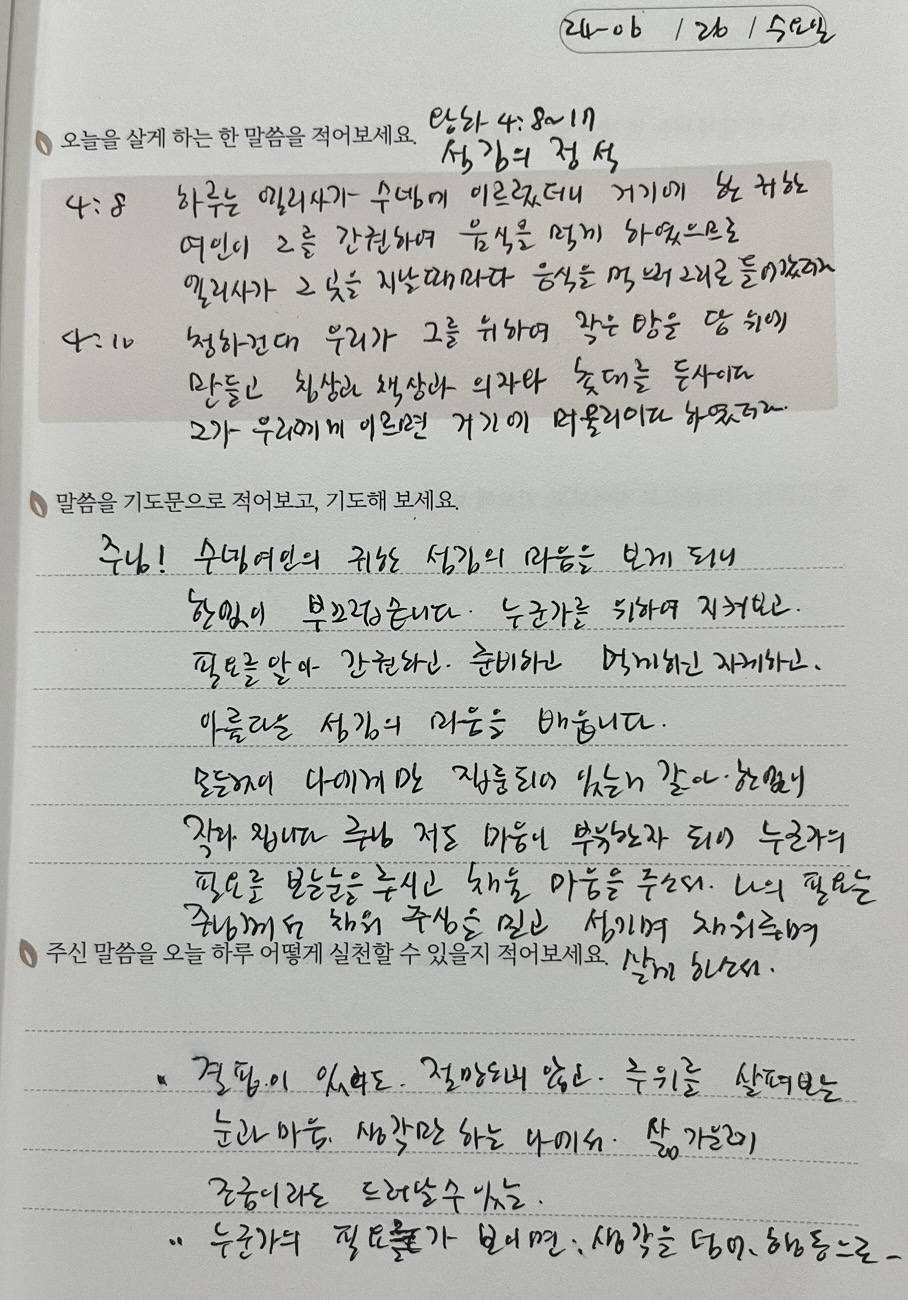 24-06 / 26 / 수요일
오늘을 살게 하는 한 말씀을 적어보세요.
왕하 4:8~17
섬김의 정석
4:8 하루는 엘리사가 수넴에 이르렀더니 거기에 한 귀한
여인이 그를 간권하여 음식을 먹게 하였으므로
엘리사가 그 곳을 지날때마다 음식을 먹으러 그리로 들어갔더라
4:10 청하건대 우리가 그를 위하여 작은 방을 담 위에
만들고 침상과 책상과 의자와 촛대를 두사이다
그가 우리에게 이르면 거기에 머물리이다 하였더라.
말씀을 기도문으로 적어보고, 기도해 보세요.
주님! 수넴여인의 귀한 섬김의 마음을 보게 되니
한없이 부끄럽습니다. 누군가를 위하여 지켜보고.
필요를 알아 간권하고. 준비하고 먹게하신 자제하고.
아름다운 섬김의 마음을 배웁니다.
모든것이 나에게만 집중되어 있는거 같아. 한없이
작아 집니다 주님 저도 마음이 부욱한자 되어 누군가의
필요를 보는눈을 주시고 채울 마음을 주소서. 나의 필요는
주님께서 채워 주심을 믿고 섬기며 채워주며
살게 하소서.
주신 말씀을 오늘 하루 어떻게 실천할 수 있을지 적어보세요.
" 결핍이 있어도. 절망되지 않고. 주위를 살펴보는
눈과 마음. 생각만 하는 나에서. 삶 가운데
조금이라도 드러날수 있는.
" 누군가의 필요가 보이면, 생각을 넘어, 행동으로-